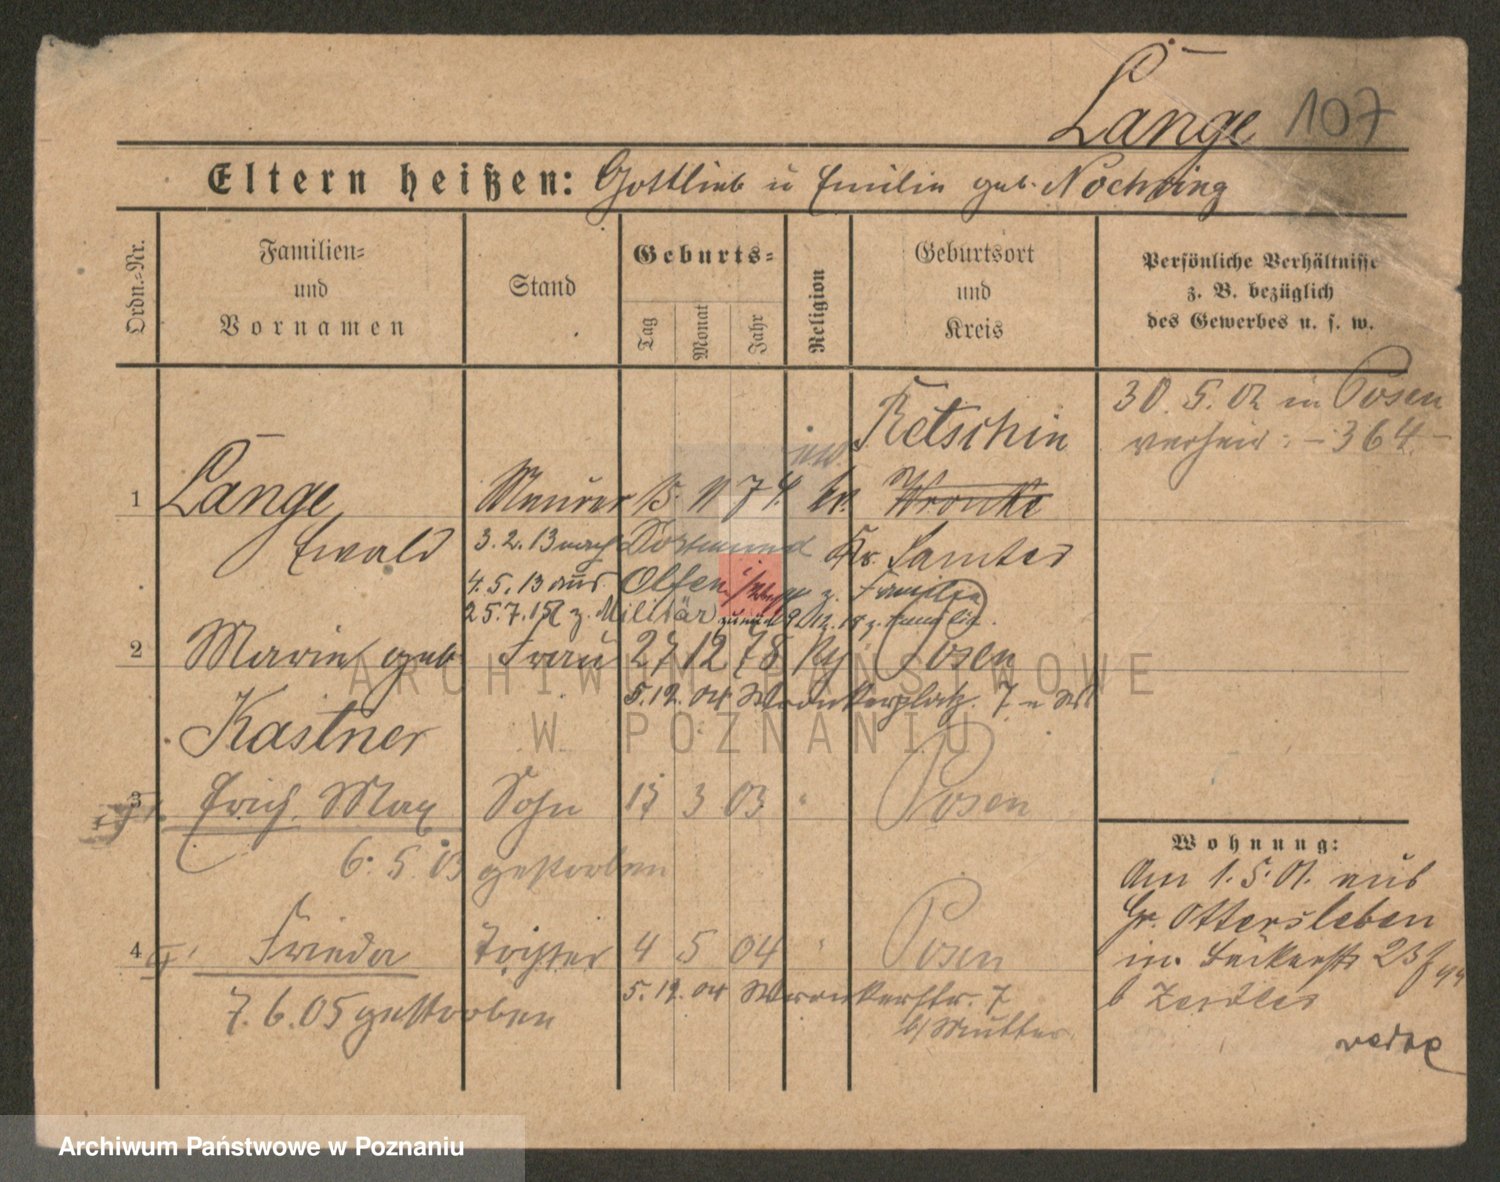 Lange 107
Eltern heißen: Gottlieb u Emilie geb. Nochring
Ordn.-Nr.
Familien-
und
Vornamen
Stand
Geburts-
Tag
Monat
Jahr
Religion
Geburtsort
und
Kreis
Persönliche Verhältnisse
z. B. bezüglich
des Gewerbes u. s. w.
30. 5. 02 in Posen
verheir: - 364 -
Retschin
1 Lange Maurer 15. 11 74. ev. Wronke
Ewald
3. 2. 13 nach Dortmund Kr. Samter
4. 5. 13 aus Olfen z. Familie
25. 7. 15 z. Militär 12. 18 z. Familie.
2 Marie geb. Frau 27 12 78 Posen
5. 12. 04 Wronkerplatz 7
Kastner
3 Erich Max Sohn 17 3 03 " Posen
6. 5. 03 gestorben
4 Frieda Tochter 4 5 04 " Posen
5. 12. 04 Wronkerstr. 7
b/ Mutter
7. 6. 05 gestorben
Wohnung:
Am 1. 5. 01. aus
Gr. Ottersleben
in Bäckerstr 23
b Zeidler
ARCHIWUM PAŃSTWOWE
W POZNANIU
Archiwum Państwowe w Poznaniu